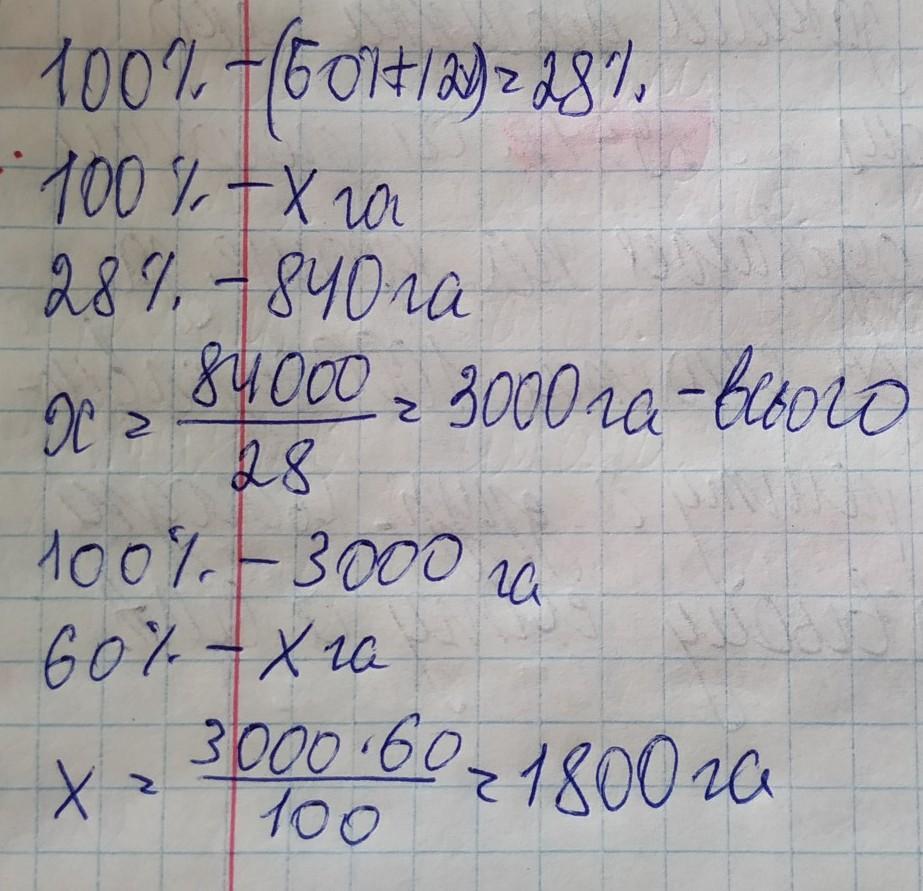 100% - (60%+12%) = 28%
100% - х га
28% - 840 га
х = 84000/28 = 3000 га - всього
100% - 3000 га
60% - х га
х = 3000·60/100 = 1800 га